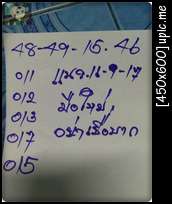 48-49-15.46
011 แนว.16-9-17
012 มือใหม่,
013 อย่าเชื่อมาก
017
015
[450x600] upic.me